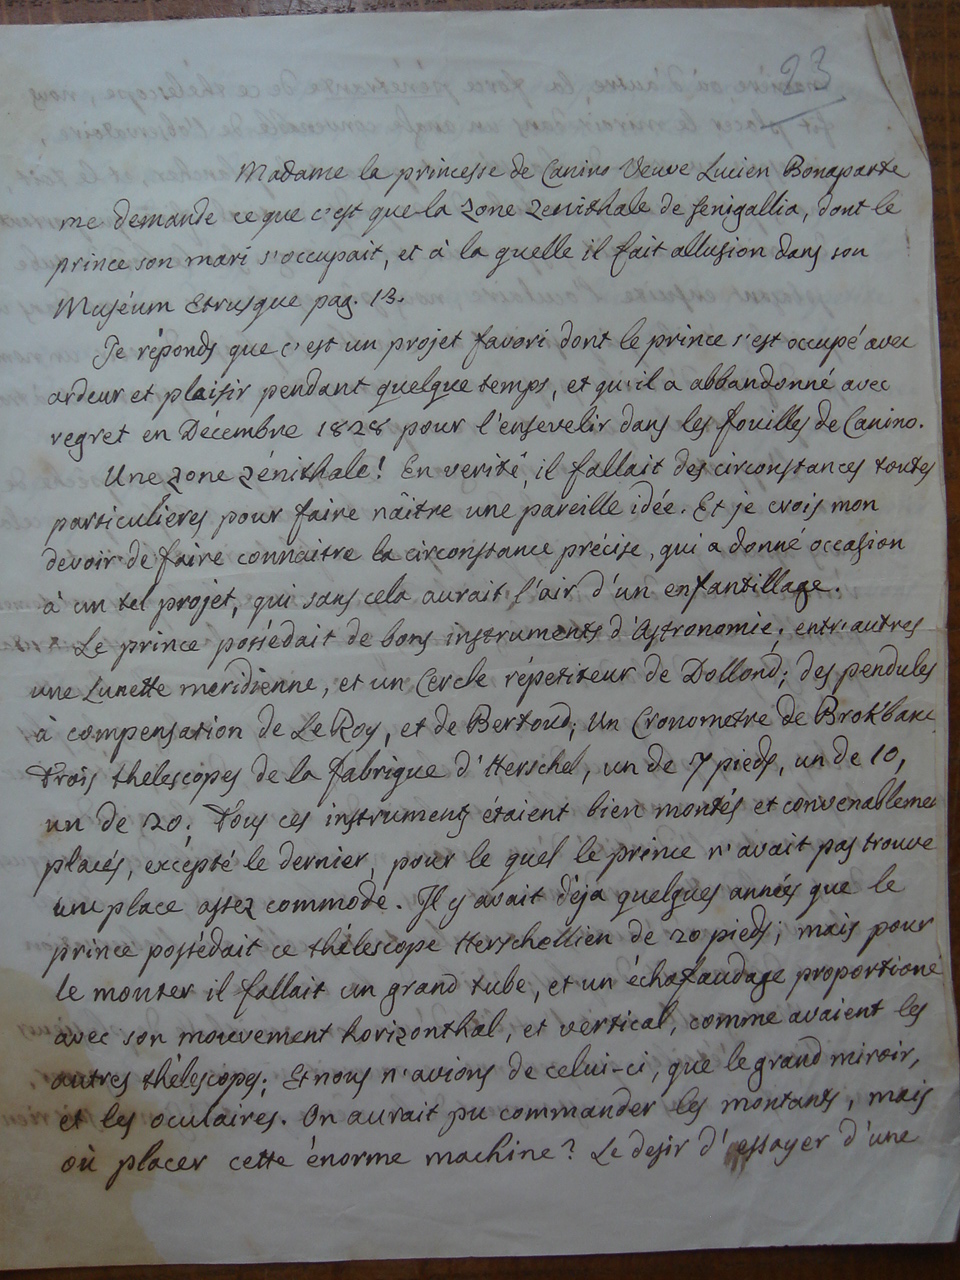 23
Madame la princesse de Canino Veuve Lucien Bonaparte
me demande ce que c'est que la Zone Zenithale de Senigallia, dont le
prince son mari s'occupait, et à la quelle il fait allusion dans son
Muséum Etrusque pag. 13.
Je réponds que c'est un projet favori dont le prince s'est occupé avec
ardeur et plaisir pendant quelque temps, et qu'il a abbandonné avec
regret en Décembre 1828 pour l'ensevelir dans les fouilles de Canino.
Une zone zénithale! En verité, il fallait des circonstances toutes
particulieres pour faire nâitre une pareille idée. Et je crois mon
devoir de faire connaitre la circonstance précise, qui a donné occasion
à un tel projet, qui sans cela aurait l'air d'un enfantillage.
Le prince possédait de bons instruments d'Astronomie; entr'autres
une Lunette meridienne, et un Cercle répetiteur de Dollond; des pendules
à compensation de Le Roy, et de Bertoud; un Cronometre de Brok'bank
Trois thelescopes de la fabrique d'Herschel, un de 7 pieds, un de 10,
un de 20. Tous ces instruments étaient bien montés et convenableme
placés, excépté le dernier, pour le quel le prince n'avait pas trouvé
une place assez commode. Il y avait déja quelques années que le
prince possédait ce thélescope Herschellien de 20 pieds; mais pour
le monter il fallait un grand tube, et un échafaudage proportioné
avec son mouvement horizonthal, et vertical, comme avaient les
autres thélescopes; Et nous n'avions de celui-ci, que le grand miroir,
et les oculaires. On aurait pu commander les montants, mais
où placer cette énorme machine? Le desir d'essayer d'une